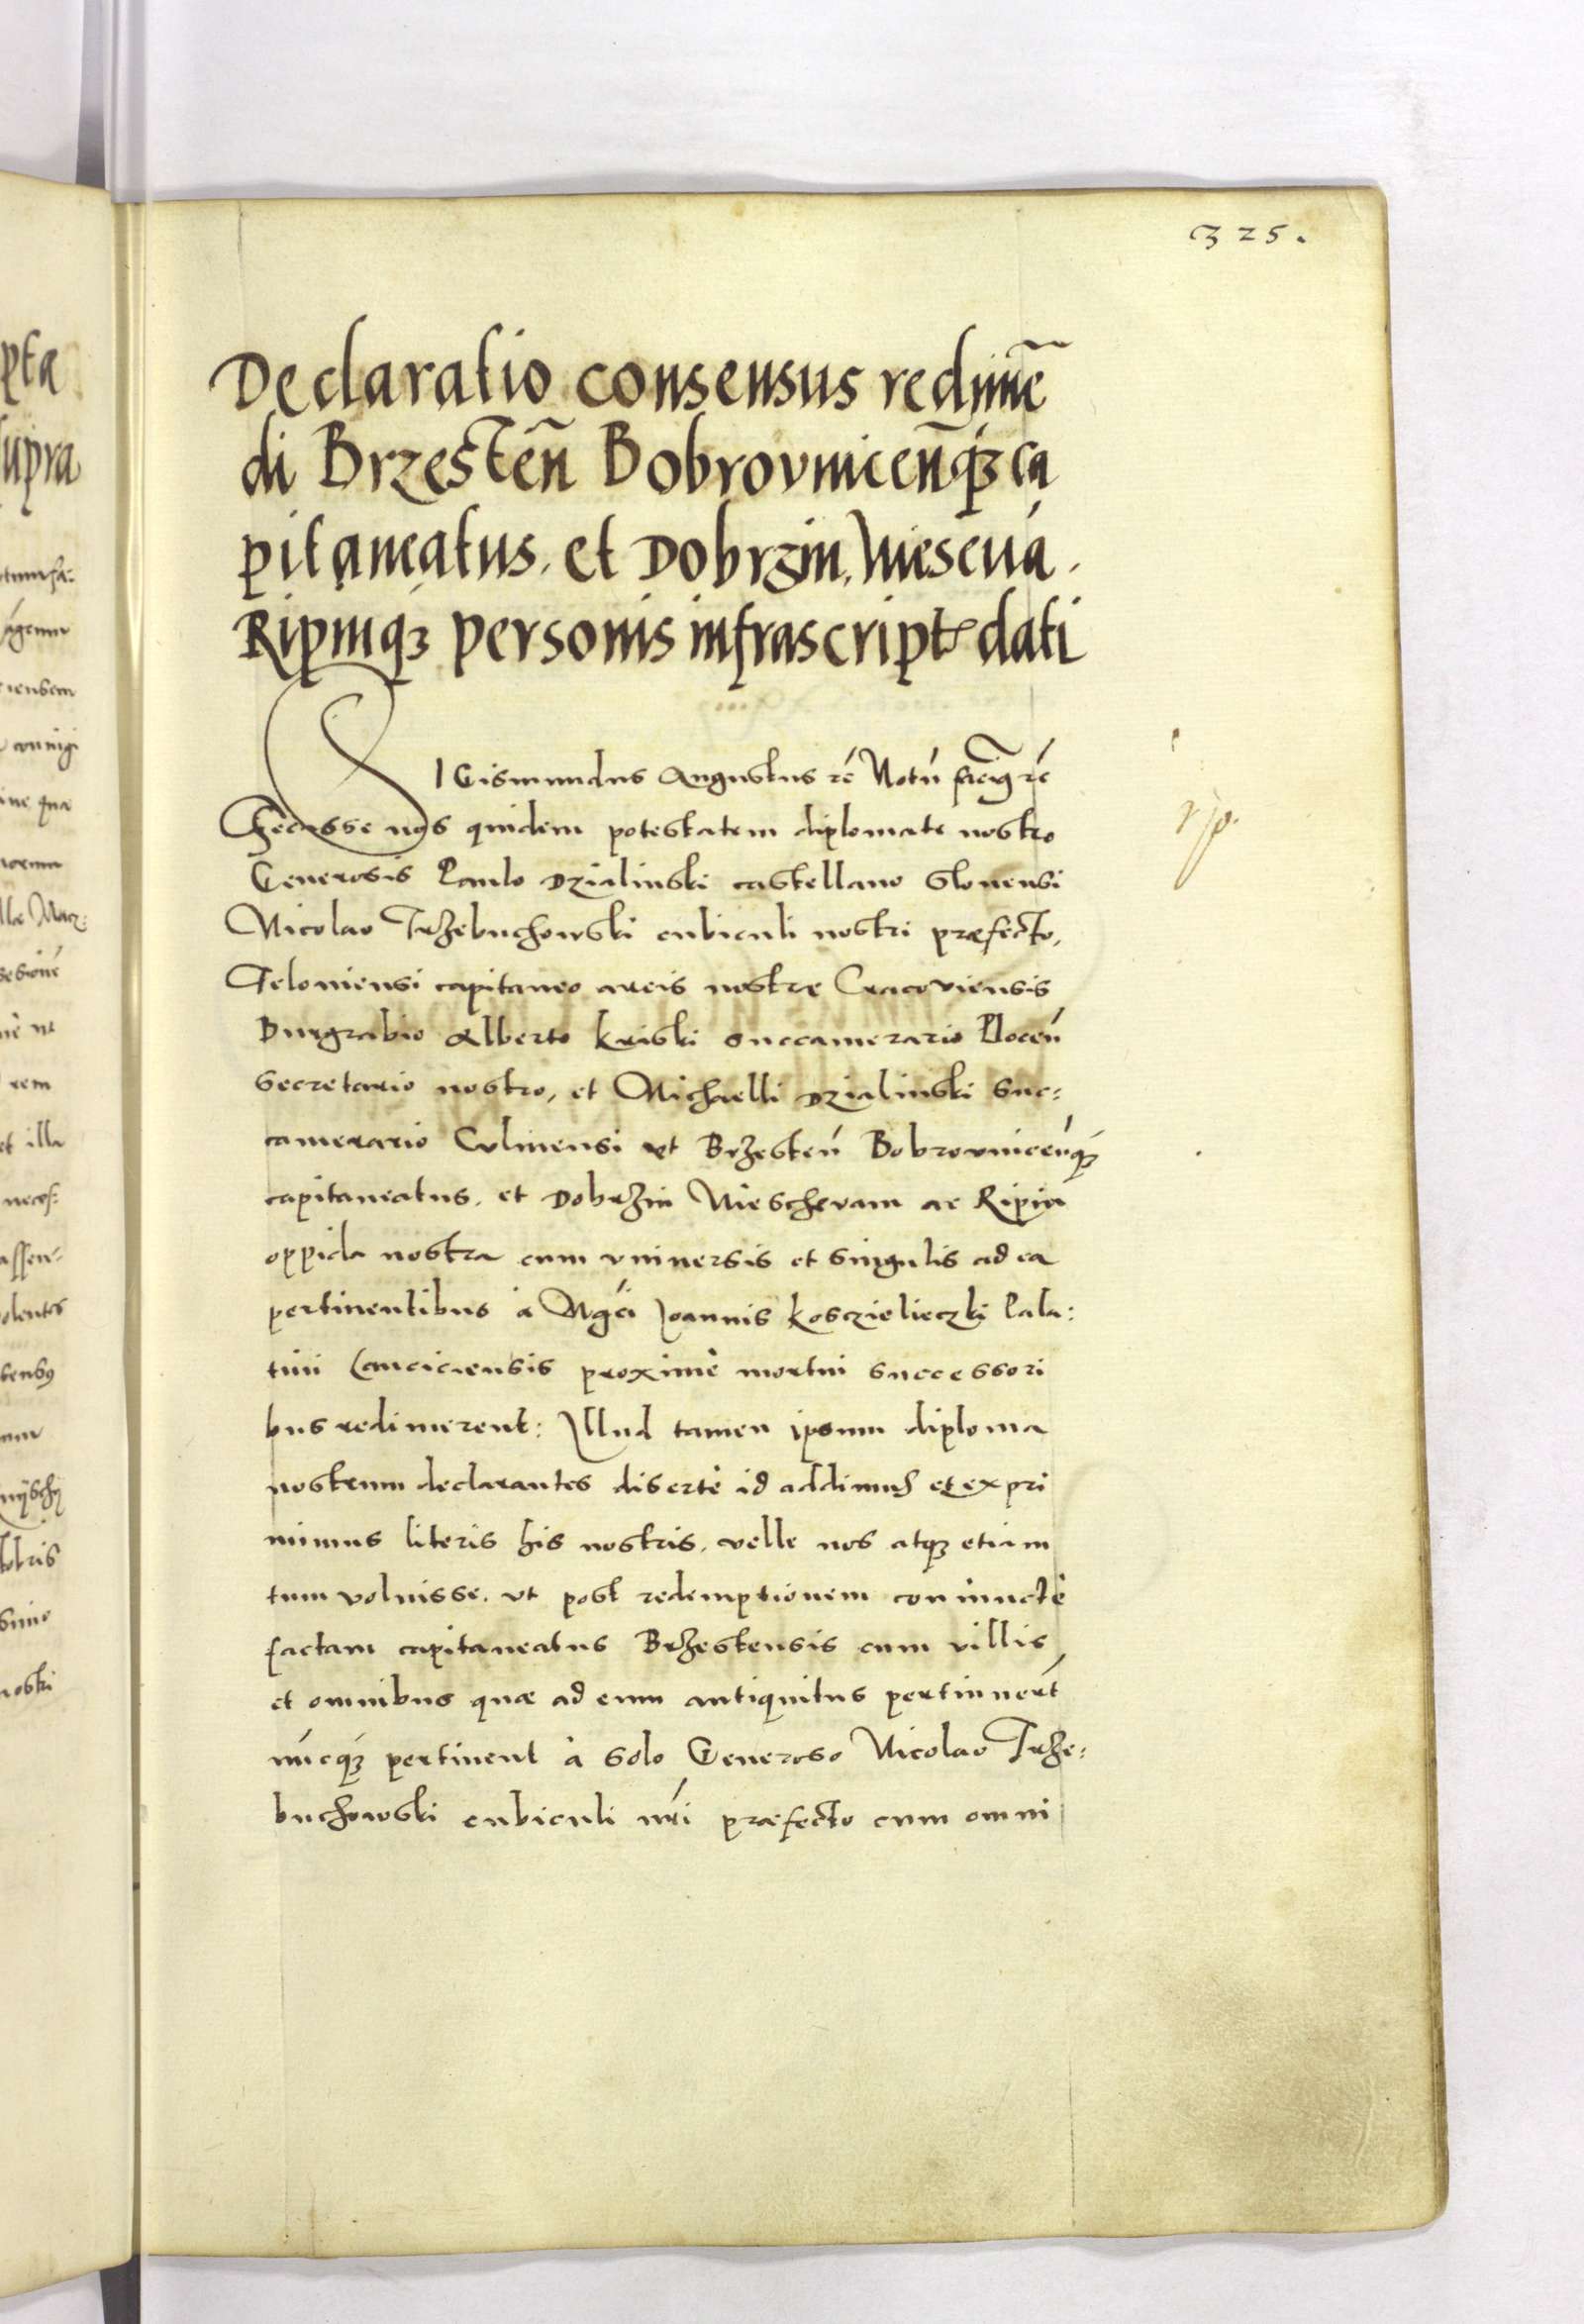 325.
Declaratio consensus redimē
di Brzesteñ Bobrovniceñq́ʒ ca
pitaneatus. et Dobrzin. Niescuá.
Ripinqʒ personis infrascript dati
SIGismundus Augustus rē Notū faciꝫ rē
Fecisse nos quidem potestatem diplomate nostro
Generosis Paulo Dzialinski castellano Slonensi
Nicolao Trzebuchowski cubiculi nostri præfecto,
Geloniensi capitaneo arcis nostre Cracoviensis
Burgrabio Alberto Kriski succamerario Ploceń
secretario nostro, et Michaelli Dzialinski suc:
camerario Culmensi vt Brzesteń Bobrovniceńq́ʒ
capitaneatus. et Dobrzin Niescheuam ac Ripin
oppida nostra cum vniuersis et singulis ad ea
pertinentibus à Mgći Joannis Kosczielieczki Pala:
tini Lanciciensis proximè mortui successori
bus redimerent: Jllud tamen ipsum diploma
nostrum declarantes disertè id addimus et expri
mimus literis his nostris. velle nos atqʒ etiam
tum voluisse. vt post redemptionem coniunctè
factam capitaneatus Brzestensis cum villis
et omnibus quæ ad eum antiquitus pertinuert́
núcq́ʒ pertinent à solo Generoso Nicolao Trze:
buchowski cubiculi nŕi præfecto cum omni